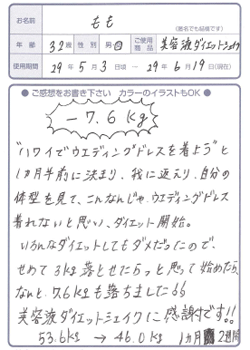 お名前
もも
(匿名でも結構です)
年齢 32歳 性別 男・女 ご使用商品 美容液ダイエットシェイク
使用期間 29年5月3日頃〜29年6月19日(現在)
●ご感想をお書き下さい カラーのイラストもOK●
－7.6kg
"ハワイでウエディングドレスを着よう"と
1カ月半前に決まり、我に返えり、自分の
体型を見て、こんなんじゃウエディングドレス
着れないと思い、ダイエット開始。
いろんなダイエットしてもダメだったので、
せめて3kg落とせたらっと思って始めたら
なんと、7.6kgも落ちました
美容液ダイエットシェイクに感謝です!!
53.6kg → 46.0kg 1カ月 2週間